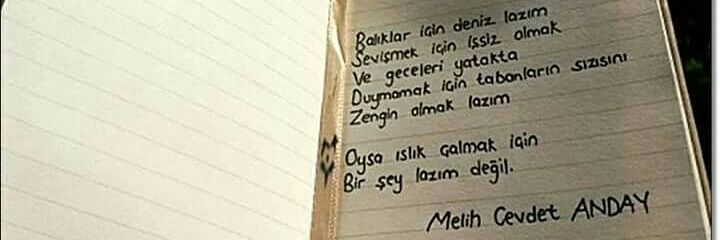 Balıklar için deniz lazım
Sevişmek için işsiz olmak
Ve geceleri yatakta
Duymamak için tabanların sızısını
Zengin olmak lazım
Oysa ıslık çalmak için
Bir şey lazım değil.
Melih Cevdet ANDAY